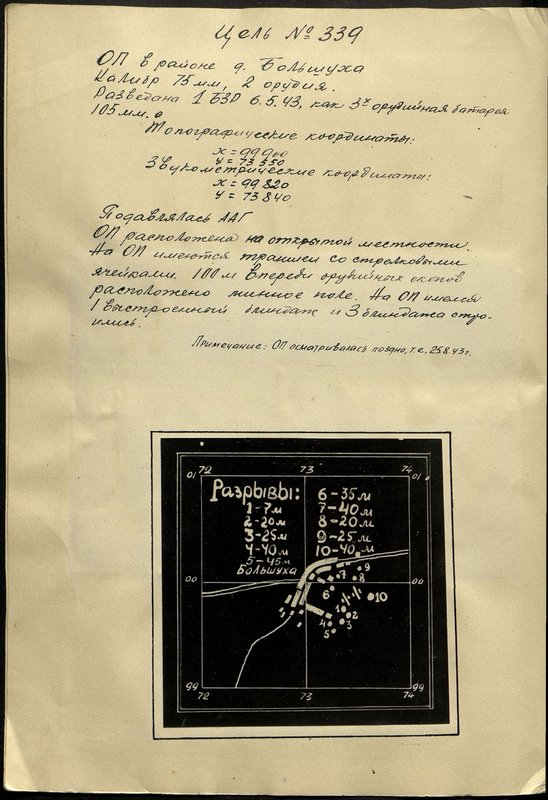 Цель № 339
ОП в районе д. Большуха
Калибр 75 мм, 2 орудия.
Разведана 1 БЗР 6.5.43, как 3х орудийная батарея
105 мм.
Топографические координаты:
x = 99900
y = 73550
Звукометрические координаты:
x = 99820
y = 73840
Подавлялась ААГ
ОП расположена на открытой местности.
На ОП имеются траншеи со стрелковыми
ячейками. 100 м впереди орудийных окопов
расположено минное поле. На ОП имелся
1 выстроенный блиндаж и 3 блиндажа стро-
ились.
Примечание: ОП осматривалась поздно, т.е. 25.8.43 г.
01 72 73 74 01
Разрывы:
1-7м
2-20м
3-25м
4-40м
5-45м
6-35м
7-40м
8-20м
9-25м
10-40м
Большуха
00 00
9
7 8
6
10
1
2
4 3
5
99 99
72 73 74